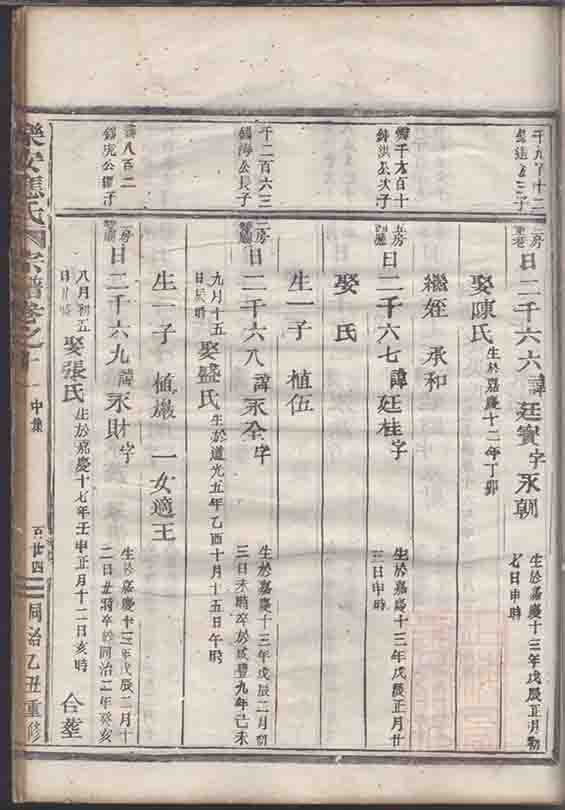 千九百十二
三子
二房
日二千六六諱廷實字永朝
生於嘉慶十三年戊辰正月初
七日申時
娶陳氏
生於嘉慶十二年丁卯
繼姪永和
千六百十
錦洪公次子
五房
日二千六七諱廷桂字
生於嘉慶十三年戊辰正月廿
三日申時
娶氏
生一子植伍
千二百六三
錦海公長子
二房
日二千六八諱永全字
生於嘉慶十三年戊辰二月初
三日未時卒於咸豐九年己未
九月十五
日辰時
娶盛氏
生於道光五年乙酉十月十五日午時
生一子植嚴一女適王
八百二
二房
日二千六九諱永財字
生於嘉慶十三年戊辰二月十
二日丑時卒於同治二年癸亥
八月初五
娶張氏
生於嘉慶十七年壬申正月十二日亥時
合塟
樂安蔣氏宗譜卷之十一
中集
百廿四
同治乙丑重修